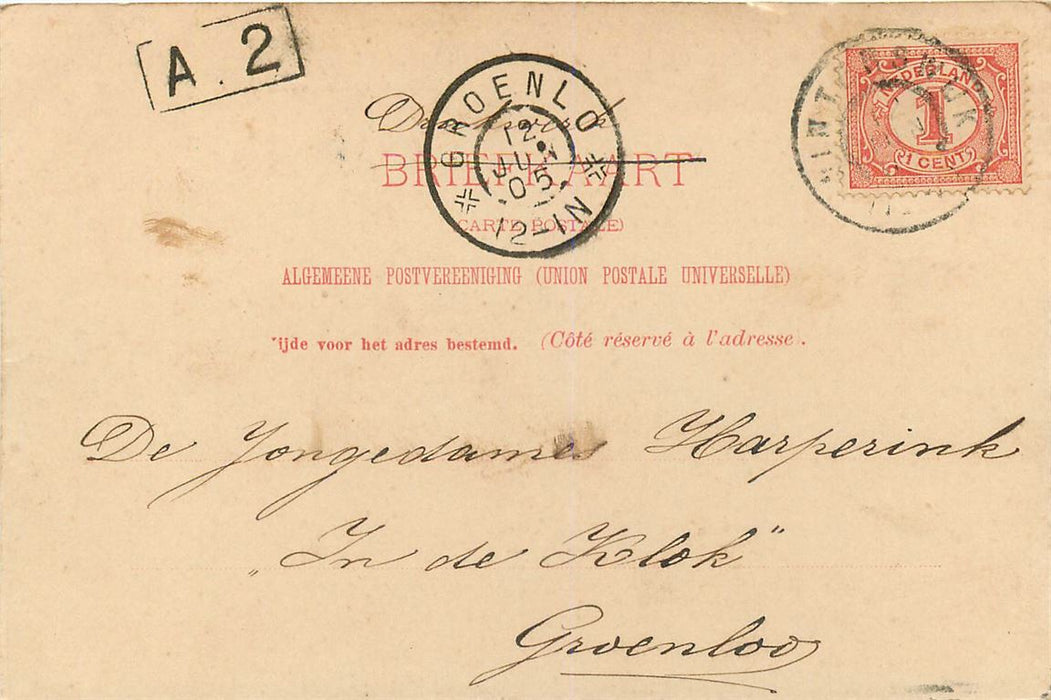 A. 2
GROENLO
12 JUN 05
12-1N
NEDERLAND
1
1 CENT
BRIEFKAART
(CARTE POSTALE)
ALGEMEENE POSTVEREENIGING (UNION POSTALE UNIVERSELLE)
ijde voor het adres bestemd. (Côté réservé à l'adresse).
De Jongedames Harperink
„In de Klok"
Groenloo